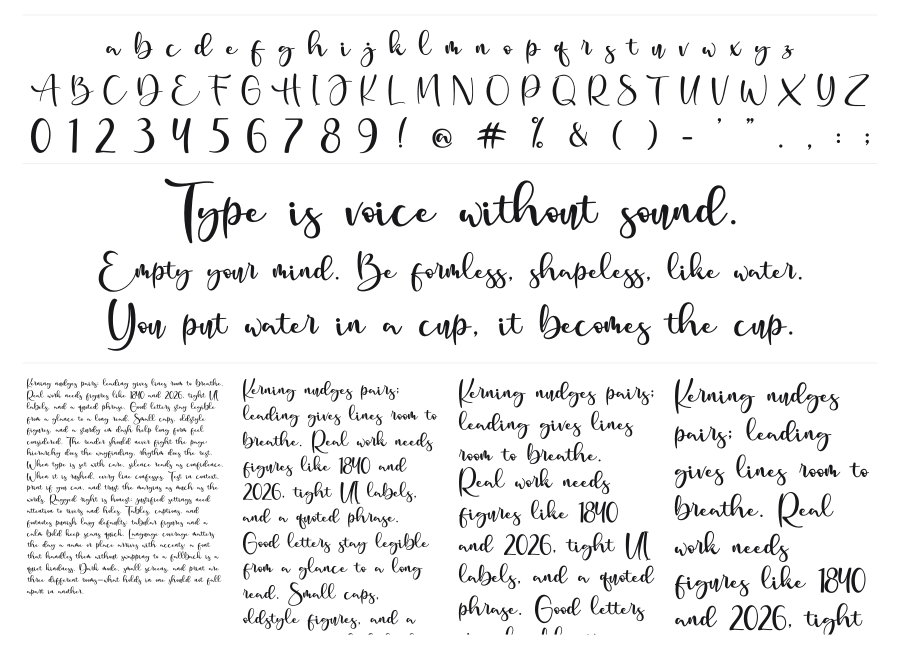 a b c d e f g h i j k l m n o p q r s t u v w x y z
A B C D E F G H I J K L M N O P Q R S T U V W X Y Z
0 1 2 3 4 5 6 7 8 9 ! @ # % & ( ) - ' " . , : ;
Type is voice without sound.
Empty your mind. Be formless, shapeless, like water.
You put water in a cup, it becomes the cup.
Kerning nudges pairs; leading gives lines room to breathe.
Real work needs figures like 1840 and 2026, tight UI
labels, and a quoted phrase. Good letters stay legible
from a glance to a long read. Small caps, oldstyle
figures, and a sturdy en dash help long form feel
considered. The reader should never fight the page:
hierarchy does the wayfinding, rhythm does the rest.
When type is set with care, silence reads as confidence.
When it is rushed, every line confesses. Test in context,
print if you can, and trust the margins as much as the
words. Ragged right is honest; justified settings need
attention to rivers and holes. Tables, captions, and
footnotes punish lazy defaults; tabular figures and a
calm bold keep scans quick. Language coverage matters
the day a name or place arrives with accents; a font
that handles them without swapping to a fallback is a
quiet kindness. Dark mode, small screens, and print are
three different rooms—what holds in one should not fall
apart in another.
Kerning nudges pairs;
leading gives lines room to
breathe. Real work needs
figures like 1840 and
2026, tight UI labels,
and a quoted phrase.
Good letters stay legible
from a glance to a long
read. Small caps,
oldstyle figures, and a
Kerning nudges pairs;
leading gives lines
room to breathe.
Real work needs
figures like 1840
and 2026, tight UI
labels, and a quoted
phrase. Good letters
Kerning nudges
pairs; leading
gives lines room to
breathe. Real
work needs
figures like 1840
and 2026, tight